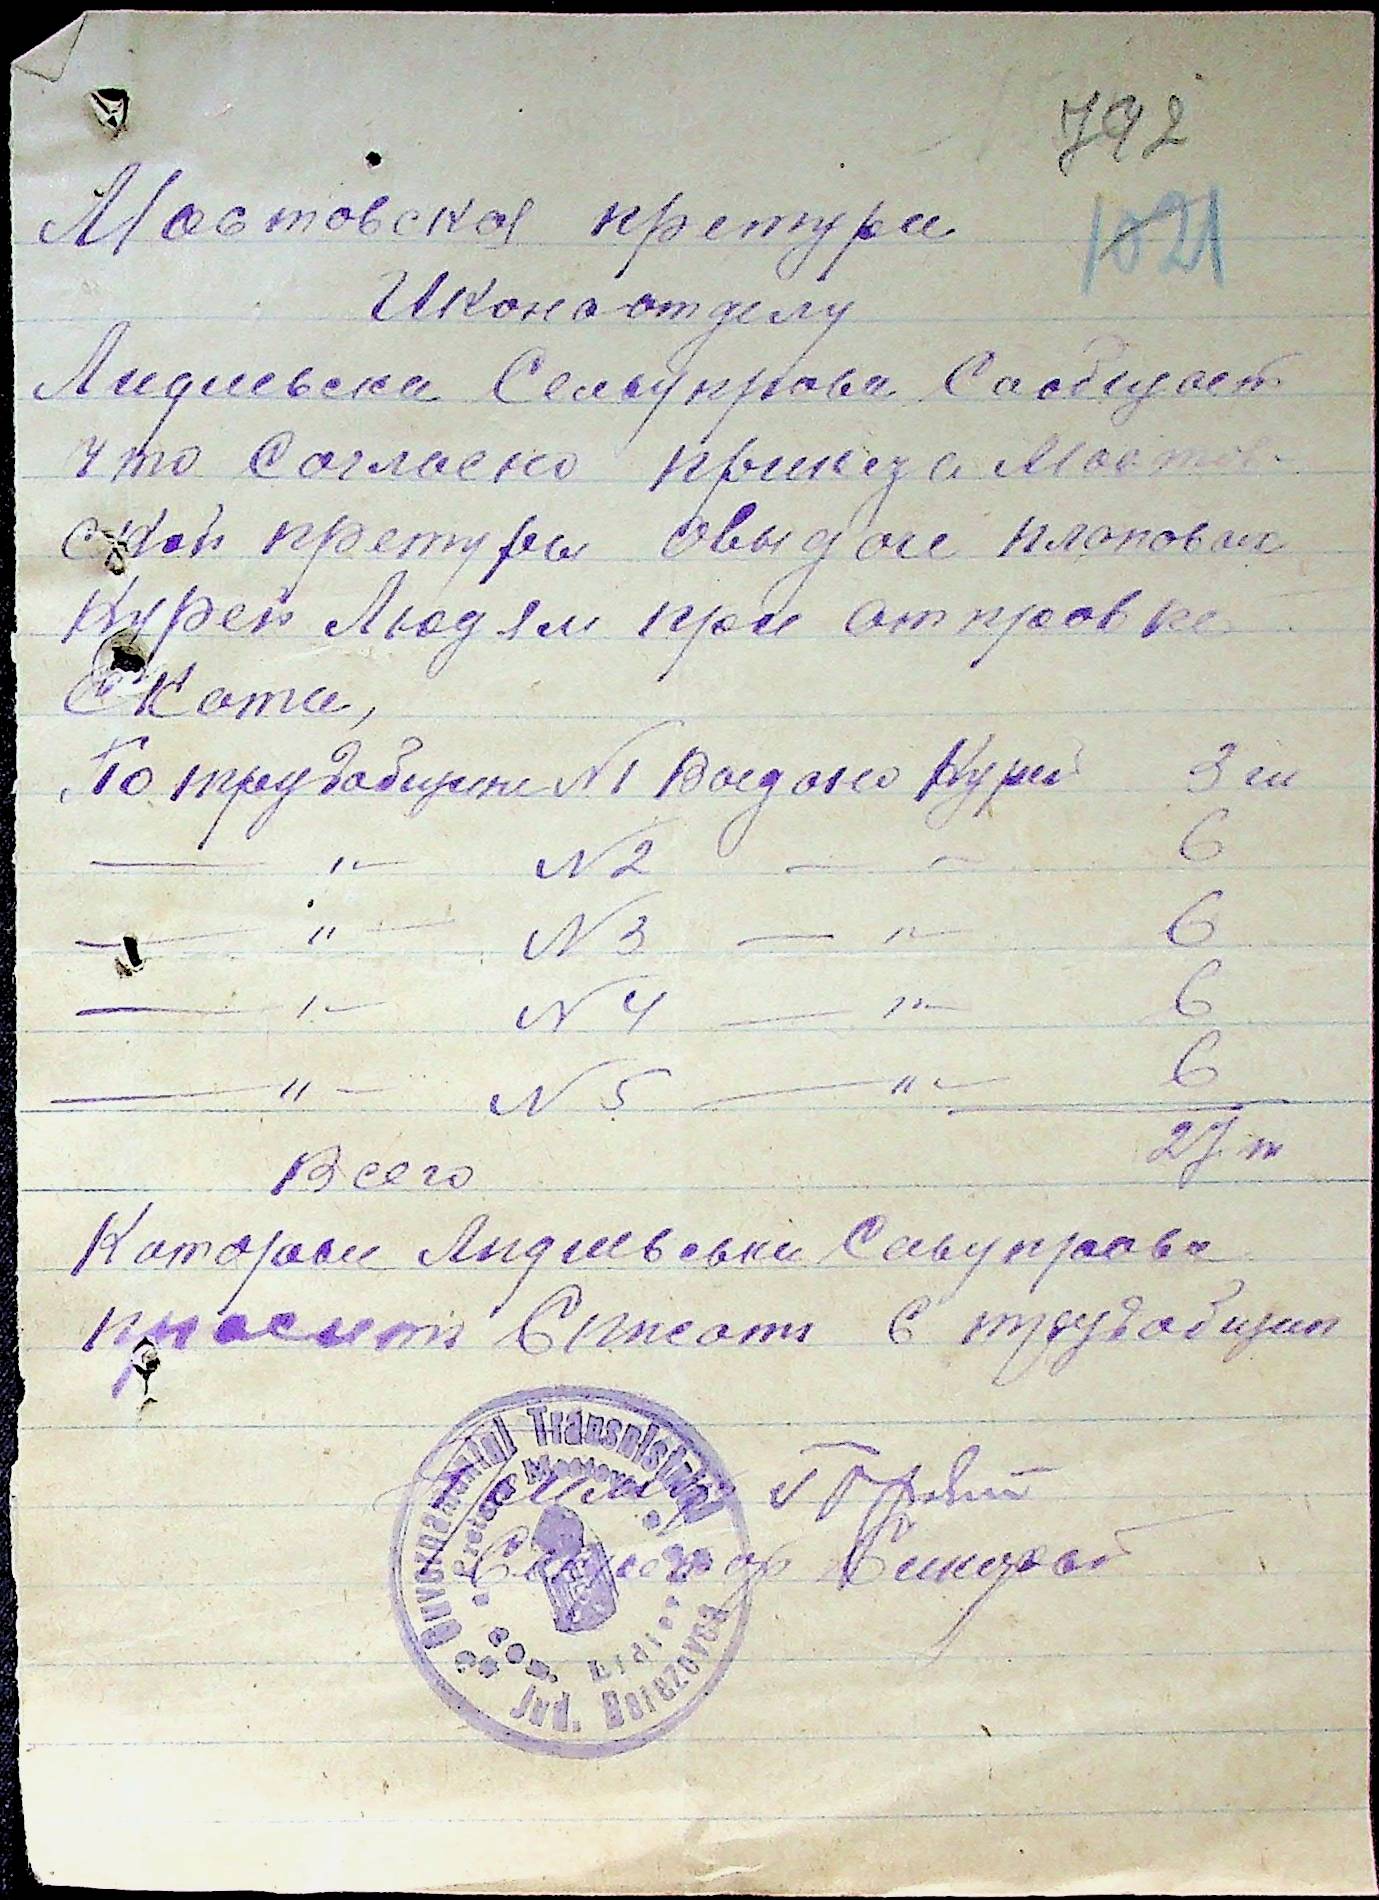 792
1021
Мостовская претура
Иконоотделу
Лидиевска Сельупрова Сообщает
что Согласно приказа Мостов-
ской претуры овыдаи плановых
Курей Людям при отправке
Скота,
По трудобщине N1 Выдано Курей 3 ш
— " — N2 — " — 6
— " — N3 — " — 6
— " — N4 — " — 6
— " — N5 — " — 6
27 ш
Всего
Которы Лидиевська Сельупрова
просить Списать с трудобщин
Guvernământul Transnistriei
Pretura Mostovoi
Jud. Berezovca
Секретар